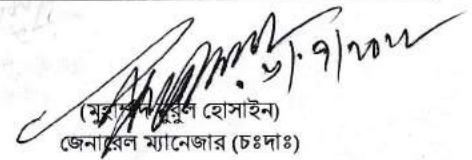 ৬/৭/২০২২
(মুহাম্মদ নুরুল হোসাইন)
জেনারেল ম্যানেজার (চঃদাঃ)